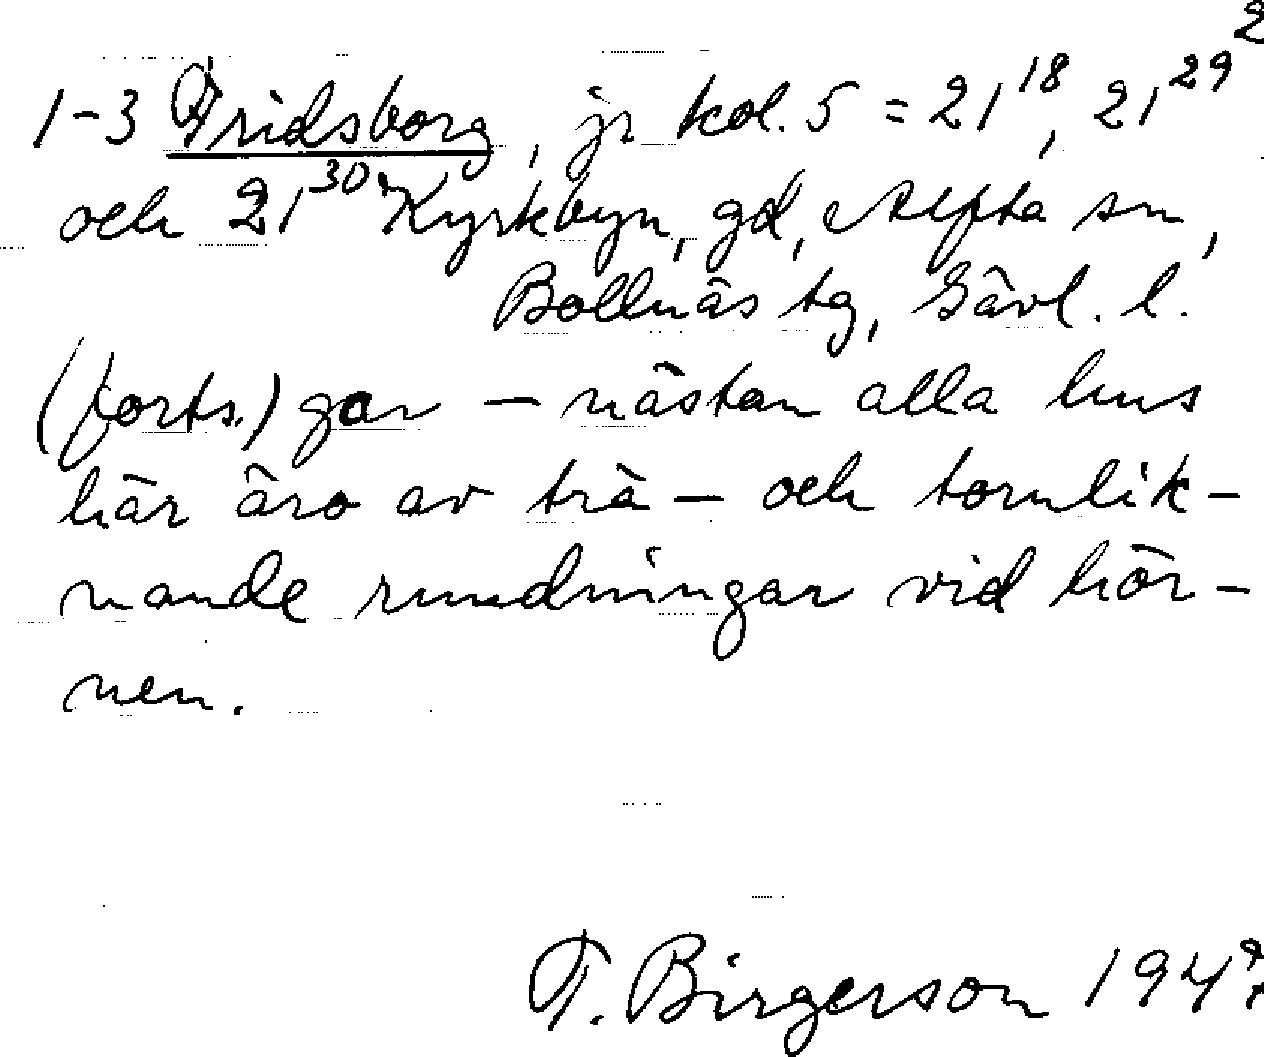 2
1-3 Fridsborg, jr kol. 5 = 21¹⁸, 21²⁹
och 21³⁰ Kyrkbyn, gd, Alfta sn,
Bollnäs tg, Gävl. l.
(forts.) gar — nästan alla hus
här äro av trä — och tornlik-
nande rundningar vid hör-
nen.
F. Birgerson 1947